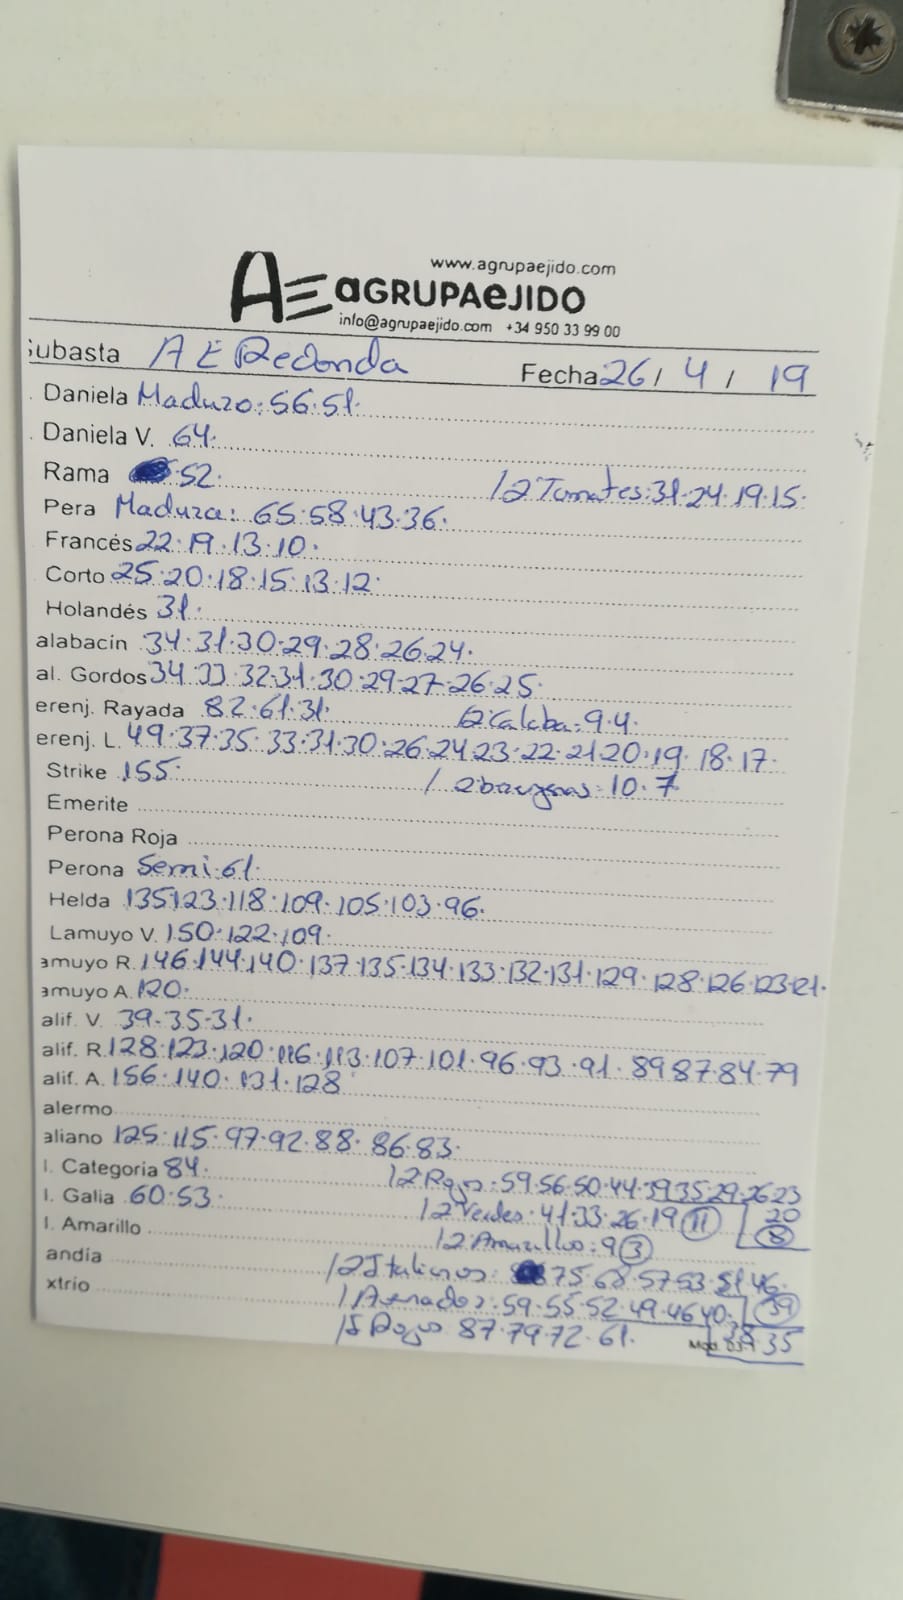 www.agrupaejido.com
AE aGRUPAeJIDO
info@agrupaejido.com +34 950 33 99 00
Subasta A E Redonda Fecha 26 / 4 / 19
Daniela Maduro: 56.51.
Daniela V. 64.
Rama 52.
12 Tomates: 31.24.19.15.
Pera Madura: 65.58.43.36.
Francés 22.19.13.10.
Corto 25.20.18.15.13.12.
Holandés 31.
alabacín 34.31.30.29.28.26.24.
al. Gordos 34.33.32.31.30.29.27.26.25.
erenj. Rayada 82.61.31. 12 Calaba: 9.4.
erenj. L. 49.37.35.33.31.30.26.24.23.22.21.20.19.18.17.
Strike 155. 10.7.
Emerite
Perona Roja
Perona Semi.61.
Helda 135.123.118.109.105.103.96.
Lamuyo V. 150.122.109.
amuyo R. 146.144.140.137.135.134.133.132.131.129.128.126.123.121.
amuyo A. 120.
alif. V. 39.35.31.
alif. R. 128.123.120.116.113.107.101.96.93.91.89.87.84.79
alif. A. 156.140.131.128
alermo
aliano 125.115.97.92.88.86.83.
l. Categoria 84. 12 Rojos: 59.56.50.44.39.35.29.26.23
20
8
l. Galia 60.53. 12 Verdes: 41.33.26.19 11
l. Amarillo 12 Amarillos: 9 3
andía 12 Italianos: 75.68.57.53.51.46.
39
xtrio 59.55.52.49.46.40.
38 35
15 Rojos 87.79.72.61.